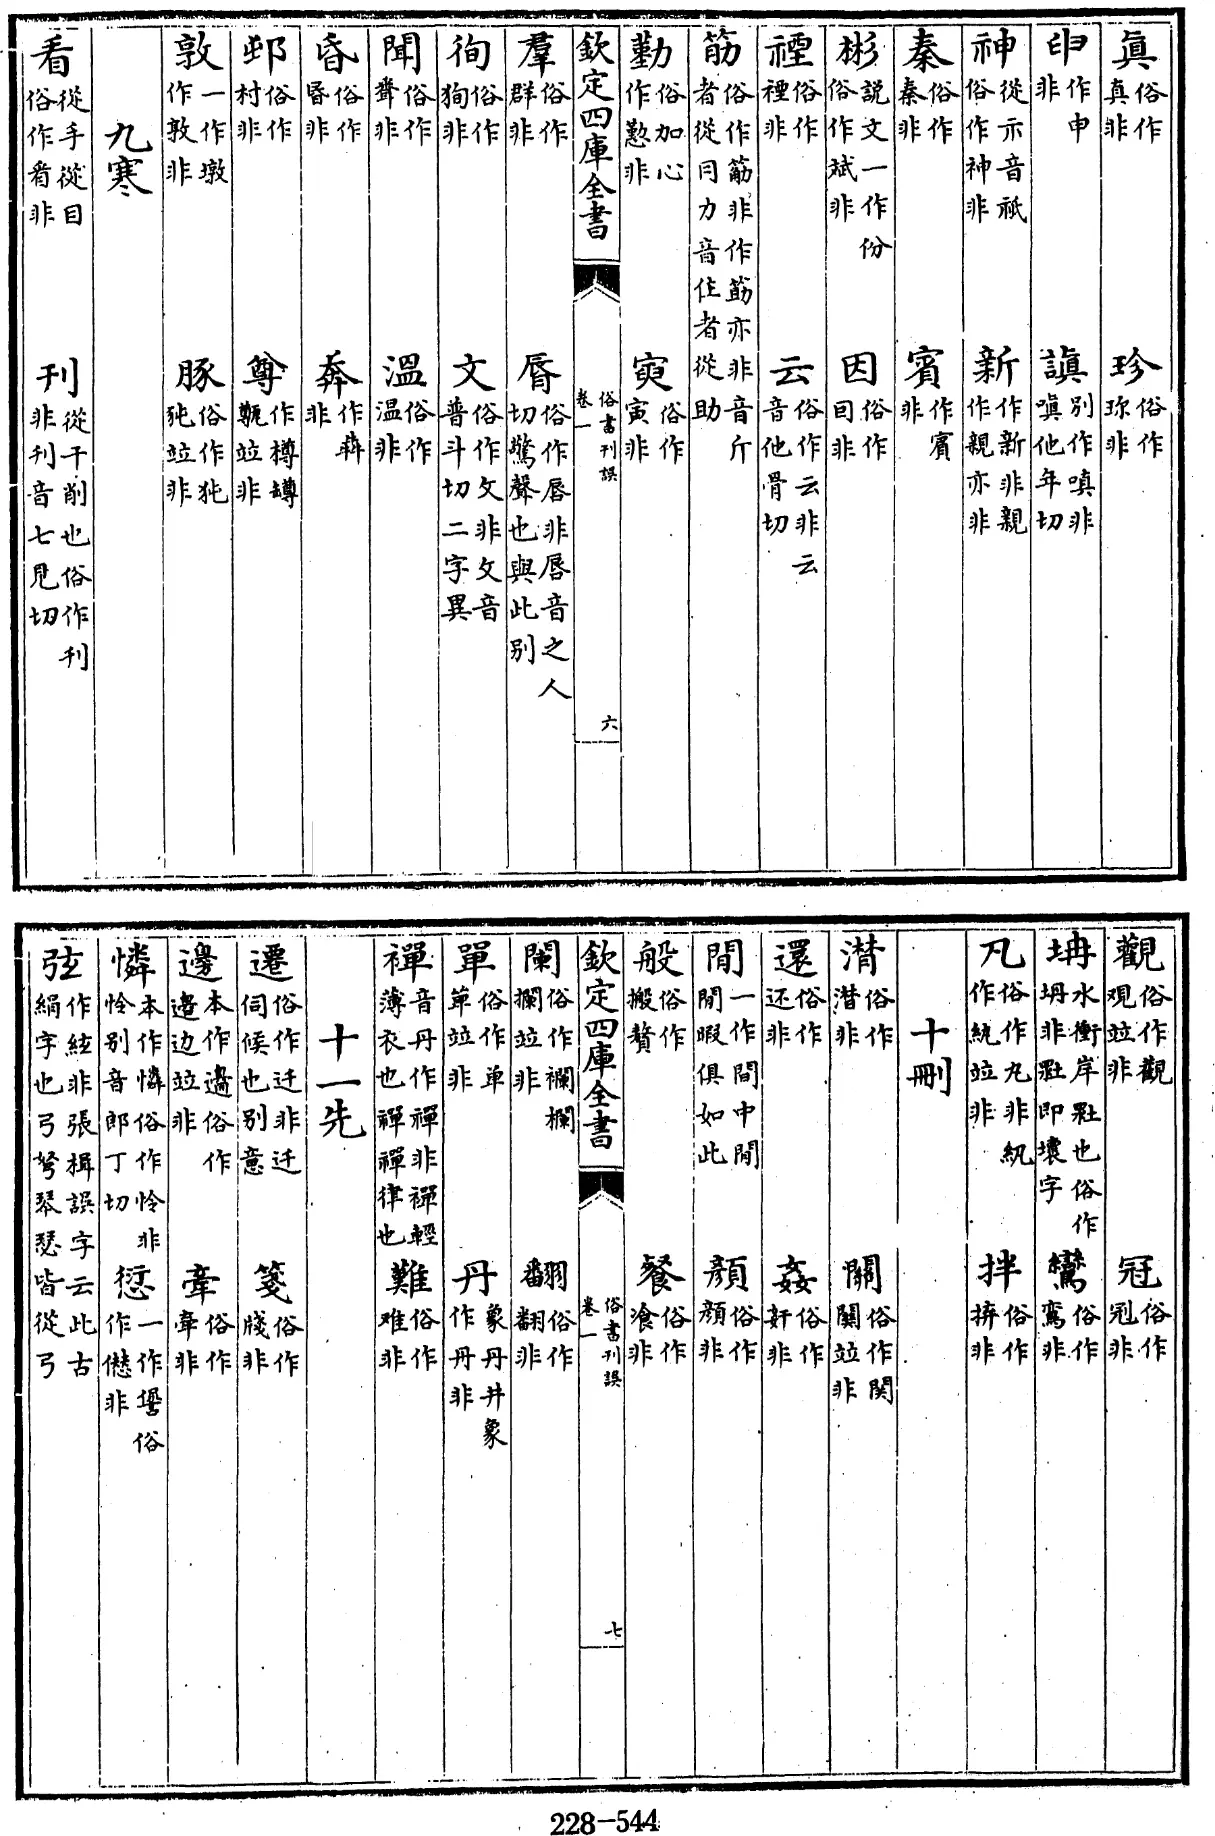 眞俗作真非　珍俗作珎非
申作申非　謓別作嗔非嗔他年切
神從示音祇俗作神非　新作新非親作親亦非
秦俗作秦非　賓作賔非
彬説文一作份俗作斌非　因俗作囙非
禋俗作禋非　云俗作云非云音他骨切
筋俗作筋非作筯亦非音斤者從月力音住者從助
勤俗加心作懃非　寅俗作寅非
欽定四庫全書　俗書刊誤卷一　六
羣俗作群非　脣俗作唇非唇音之人切驚聲也與此别
徇俗作狥非　文俗作攵非攵音普斗切二字異
聞俗作非　溫俗作温非
昏俗作昬非　奔作犇非
邨俗作村非　尊作樽罇竝非
敦一作墩作敦非　豚俗作㹠独竝非
九寒
看從手從目俗作看非　刊從干削也俗作刋非刋音七見切
觀俗作觀观竝非　冠俗作冦非
坍水衝岸㘱也俗作坍非㘱即壞字　鸞俗作鸾非
凡俗作九非紈作紈竝非　拌俗作拚非
十刪
潸俗作潜非　關俗作関闗竝非
還俗作还非　姦俗作奸非
閒一作間中閒閒暇俱如此　顔俗作顔非
般俗作搬贅　餐俗作飡非
欽定四庫全書　俗書刊誤卷一　七
闌俗作襴欄攔竝非　翻俗作翻非
單俗作单箪竝非　丹象丹井象作丹非
襌音丹作禪非襌輕薄衣也禪禪律也　難俗作难非
十一先
遷俗作迁非迁伺候也别意　箋俗作牋非
邊本作邊俗作邉边竝非　牽俗作牵非
憐本作憐俗作怜非怜别音郎丁切　愆一作諐俗作僽非
弦作絃非張揖誤字云此古絹字也弓弩琴瑟皆從弓
228-544